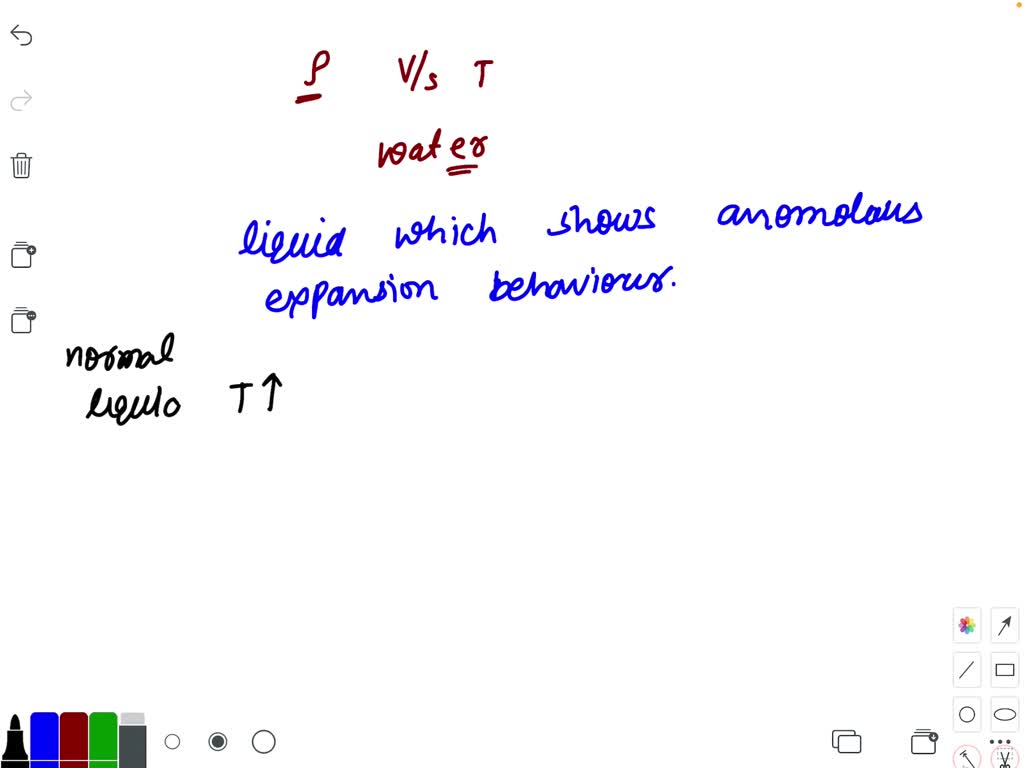 ρ V/s T
water
liquid which shows anomolous
expansion behaviour.
normal
liquid T↑